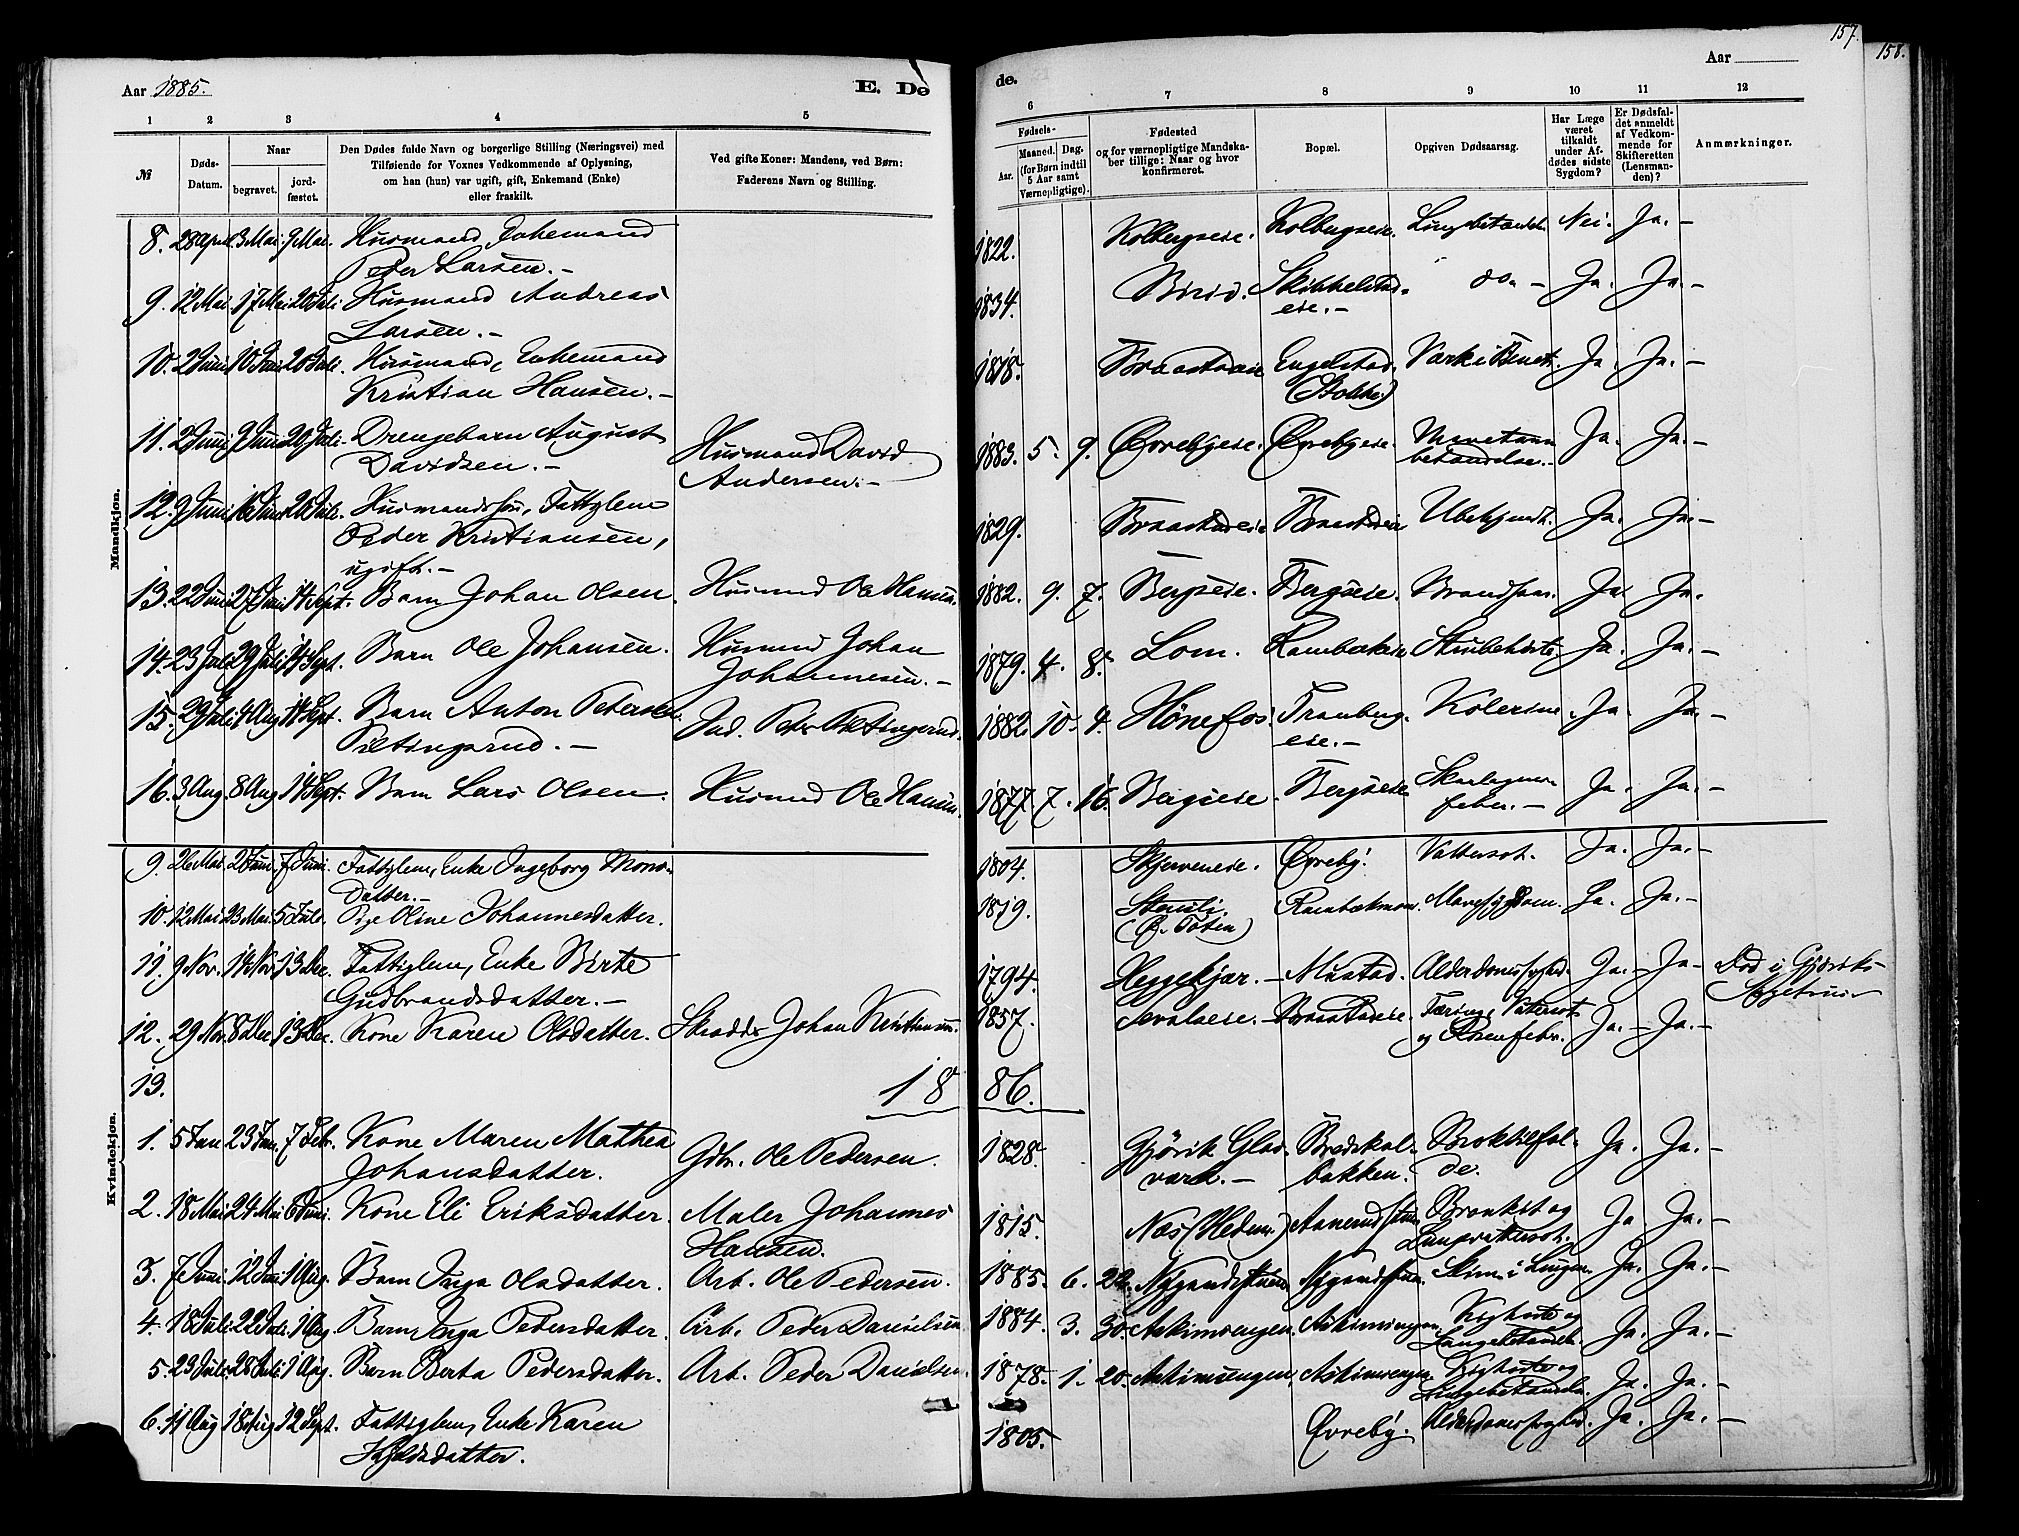 157.
158.
Aar 1885.
E. Dø
de.
Aar
1 2 3 4 5 6 7 8 9 10 11 12
№
Døds-Datum.
Naar
begravet.
jordfæstet.
Den Dødes fulde Navn og borgerlige Stilling (Næringsvei) med
Tilføiende for Voxnes Vedkommende af Oplysning,
om han (hun) var ugift, gift, Enkemand (Enke)
eller fraskilt.
Ved gifte Koner: Mandens, ved Børn:
Faderens Navn og Stilling.
Fødsels-
Aar.
Maaned. Dag.
(for Børn indtil
5 Aar samt
Værnepligtige).
Fødested
og for værnepligtige Mandska-
ber tillige: Naar og hvor
konfirmeret.
Bopæl.
Opgiven Dødsaarsag.
Har Læge
været
tilkaldt
under Af-
dødes sidste
Sygdom?
Er Dødsfal-
det anmeldt
af Vedkom-
mende for
Skifteretten
(Lensman-
den)?
Anmærkninger.
Mandkjøn.
8. 28 April 3 Mai 9 Mai. Husmand, Enkemand 1822. Kolbergseie. Kolbergseie. Lungebetændelse Nei. Ja. -
Peder Larsen. -
9. 12 Mai 17 Mai 20 Juli Husmand Andreas 1834. Birid. Skikkelstad- do. - Ja. Ja. -
Larsen. - eie. -
10. 2 Juni 10 Juni 20 Juli. Husmand, Enkemand 1818. Braastadeie Engelstad. Værk i Benet. Ja. Ja. -
Kristian Hansen. -
11. 2 Juni 9 Juni 20 Juli. Drengebarn August Husmand David 1883. 5. 9. Øvrebyeie. Øvrebyeie. Ja. Ja. -
Davidsen. - Andersen. - betændelse. -
12. 9 Juni 16 Juni 20 Juli. Husmandssøn, Fattiglem 1829. Braastadeie Braastadeie Ubekjendt. Ja. Ja. -
Peder Kristiansen,
ugift. -
13. 22 Juni 27 Juni 14 Sept. Barn Johan Olsen. Husmd Ole Hansen. 1882. 9. 7. Bergseie. Bergseie. Brandsaar. Ja. Ja.
14. 23 Juli 29 Juli 14 Sept. Barn Ole Johansen. Husmd Johan 1879. 4. 8. Lom. Rambækeie Strubehoste. Ja. Ja. -
Johannesen. -
15. 29 Juli 4 Aug 14 Sept. Barn Anton Pedersen Ind. Peder Piltingsrud. 1882. 10. 4. Hønefos. Tranberg- Kolerine. Ja. Ja. -
Piltingsrud. - eie. -
16. 3 Aug. 8 Aug 14 Sept. Barn Lars Olsen. Husmd Ole Hansen. 1877. 7. 16. Bergseie. Bergseie Skarlagens- Ja. Ja. -
feber. -
Kvindekjøn.
9. 26 Mai. 2 Juni. 7 Juni. Fattiglem, Enke Ingeborg Mons- 1804. Skjerveneie. Øvreby. Vattersot. Ja. Ja. -
Datter. -
10. 12 Mai 23 Mai 5 Juli. Pige Oline Johannesdatter. 1819. Stensli. Rambækmoen. Mavesygdom. Ja. Ja. -
(Ø. Toten)
11. 9 Nov. 14 Nov 13 Dec. Fattiglem, Enke Birte 1794. Heggekjær. - Mustad. Alderdomssvaghed. Ja. - Ja - Død i Gjøviks
Gudbrandsdatter. -
12. 29 Nov. 8 Dec. 13 Dec. Kone Karen Olsdatter. Skrædder Johan Kristiansen. 1857. - Braastadeie. Tæring, Vattersot Ja. - Ja. -
og Rosenfeber.
13.
18 86.
1. 5 Jan 23 Jan. 7 Febr. Kone Maren Mathea Gdbr. Ole Pedersen. 1828. Gjøvik Glas- Bredskal- Broktilfæl- Ja. Ja. -
Johansdatter. værk. - bakken. de.
2. 18 Mai 24 Mai 6 Juni. Kone Eli Eriksdatter. Maler Johannes 1815. Næs (Hedem.) Bronkit og Ja Ja. -
Hansen.
3. 7 Juni 12 Juni 1 Aug. Barn Inga Olsdatter. Arb. Ole Pedersen. 1885. 6. 22. Nygaardstuen Nygaardstuen. i Lungen. Ja. Ja. -
4. 18 Juli 22 Juli 1 Aug. Barn Inga Pedersdatter. Arb. Peder Danielsen 1884. 3. 30. Askimsengen. Askimsengen. Kighoste og Ja. Ja. -
Lungebetændelse.
5. 23 Juli 28 Juli 1 Aug. Barn Berta Pedersdatter. Arb. Peder Danielsen. 1878. 1. 20. Askimsengen. Askimsengen Kighoste og Ja. Ja. -
Lungebetændelse.
6. 11 Aug 18 Aug 12 Sept. Fattiglem, Enke Karen 1805. Øvreby. Alderdomssvaghed. Ja. Ja. -